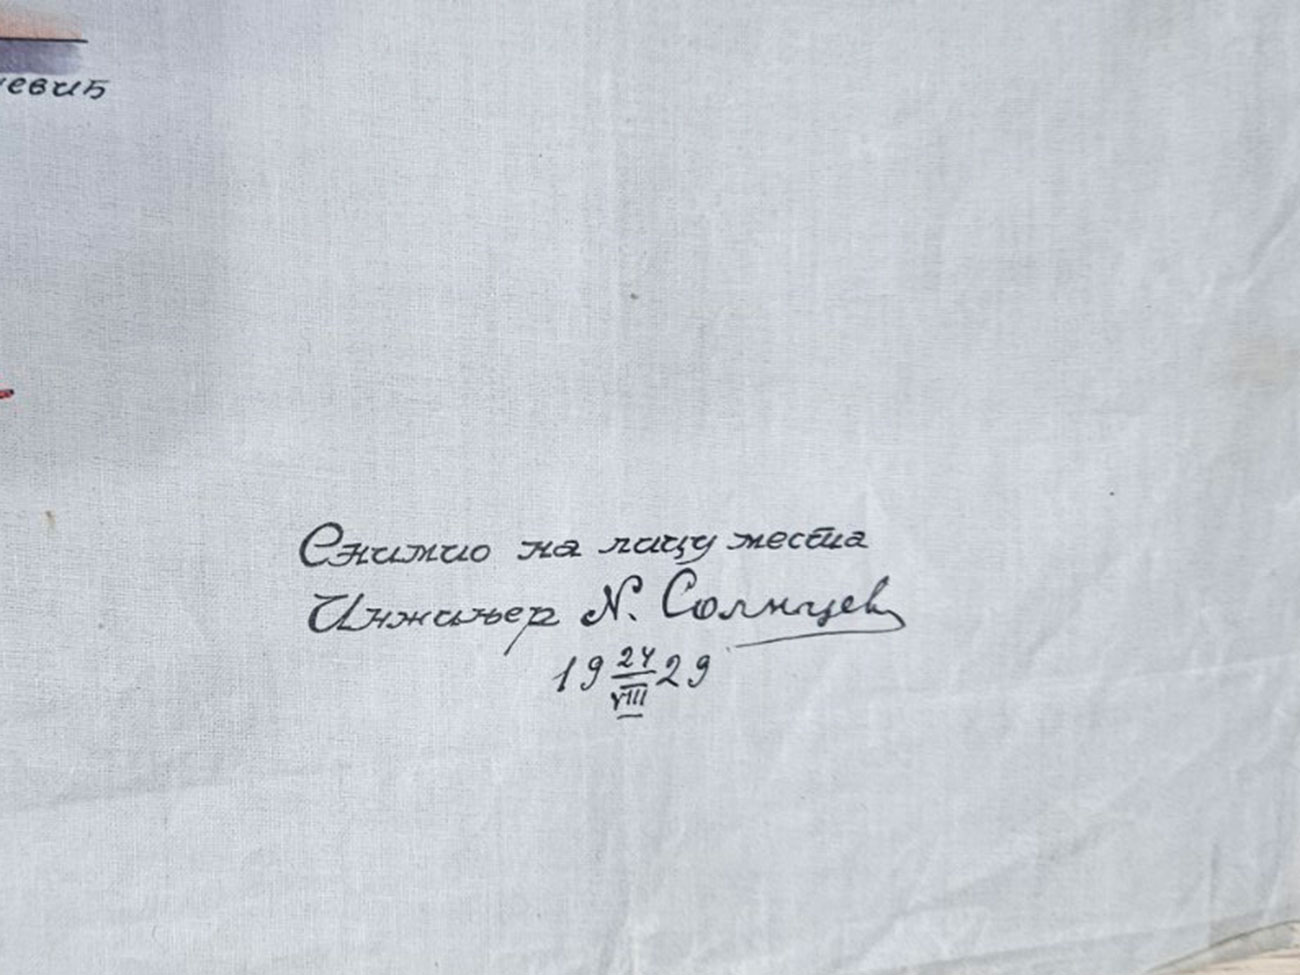 евић
Снимио на лицу места
Инжињер N. Солнцев
19 24/VIII 29